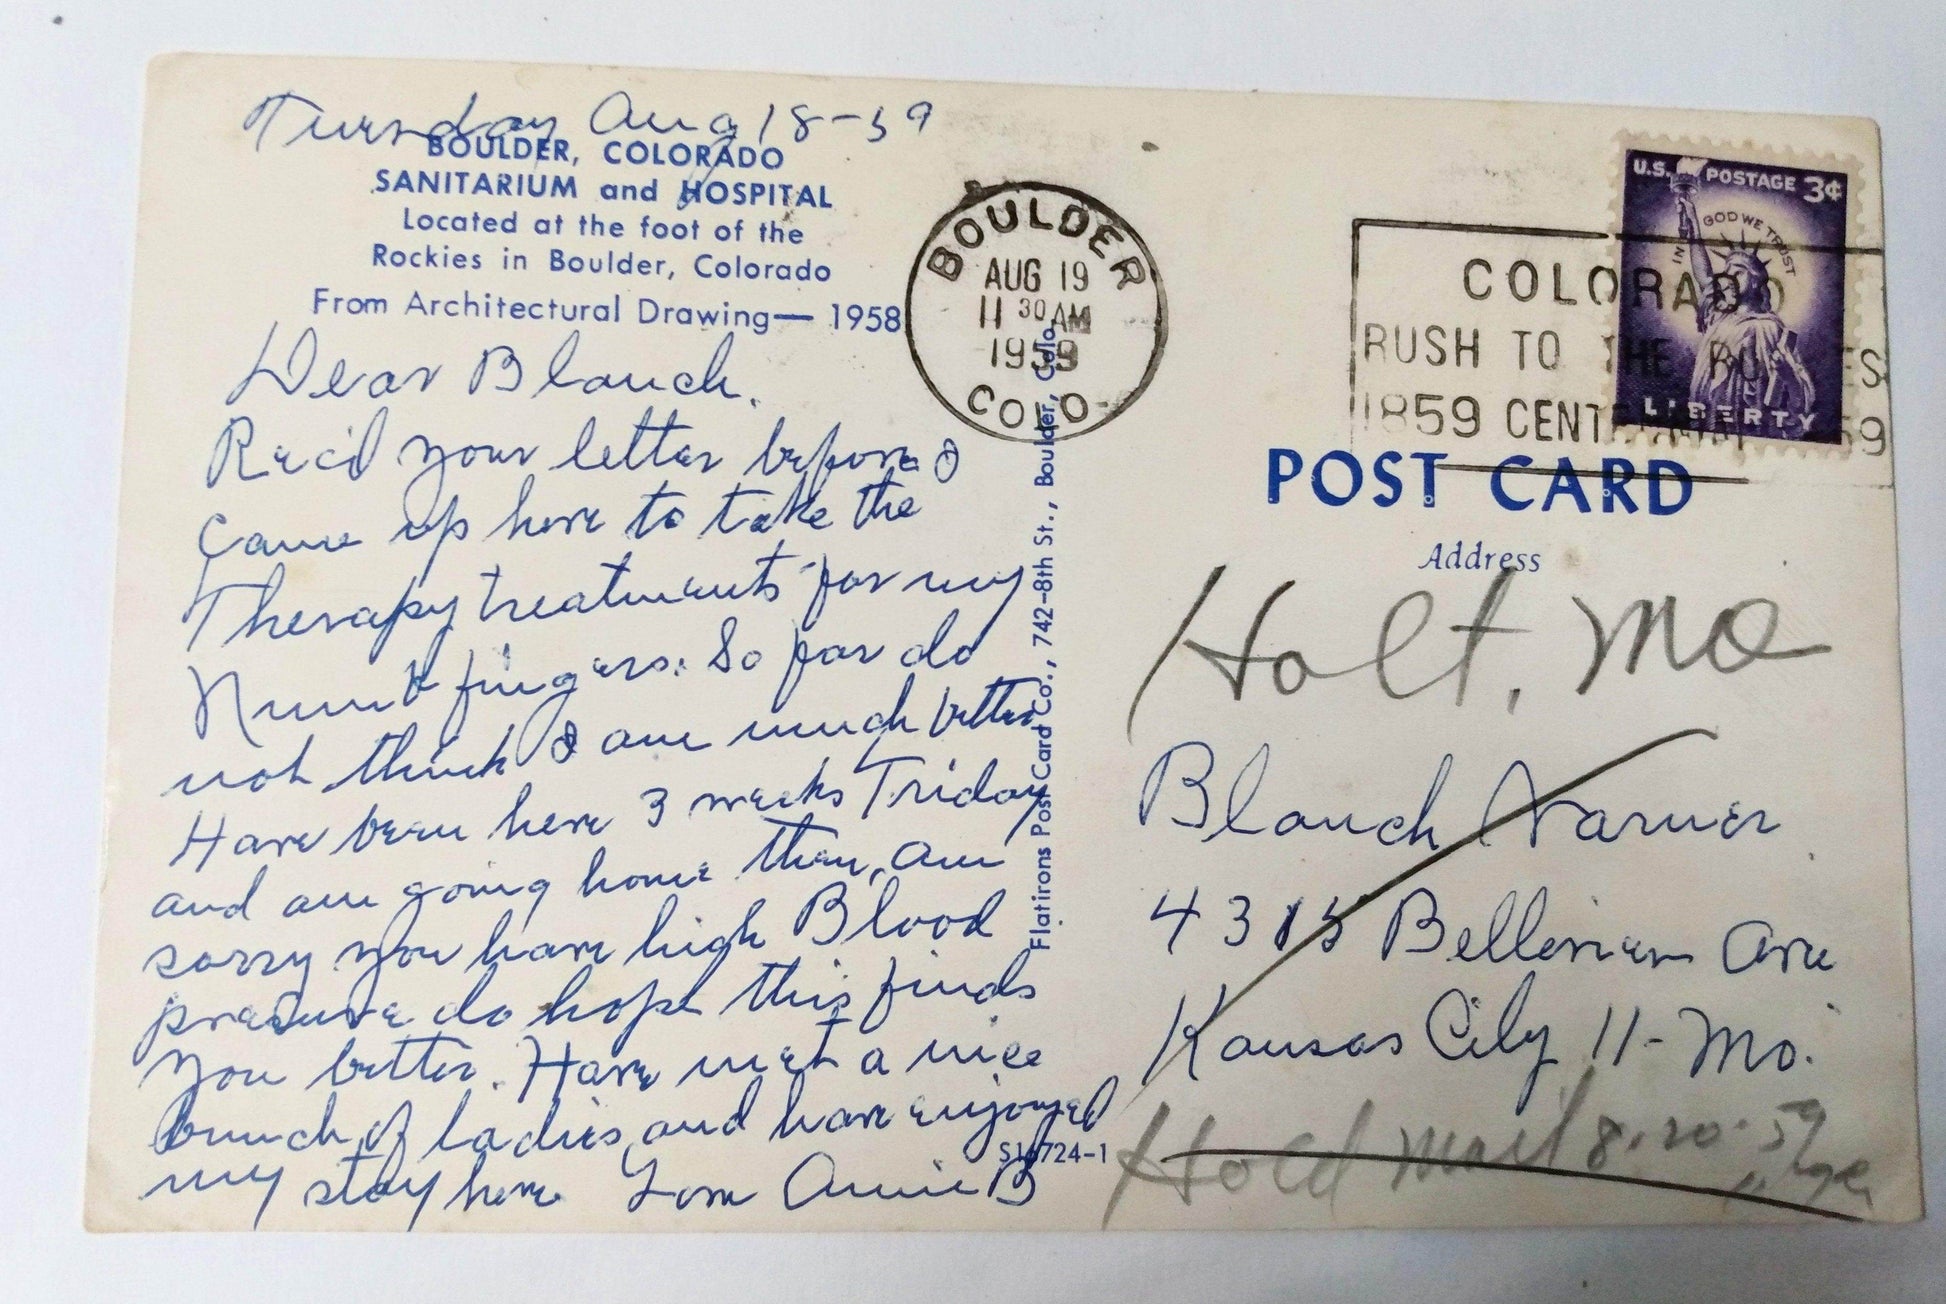 Tuesday Aug 18-59
BOULDER, COLORADO
SANITARIUM and HOSPITAL
Located at the foot of the
Rockies in Boulder, Colorado
From Architectural Drawing— 1958
Dear Blanch.
Rec'd your letter before I
came up here to take the
Therapy treatments for my
Numb fingers. So far do
not think I am much better
Have been here 3 weeks Friday
and am going home then, am
sorry you have high Blood
presure do hope this finds
you better. Have met a nice
bunch of ladies and have enjoyed
my stay here Love Annie B
Flatirons Post Card Co., 742-8th St., Boulder, Colo.
S16724-1
BOULDER
AUG 19
11 30 AM
1959
COLO
U.S. POSTAGE 3¢
IN GOD WE TRUST
LIBERTY
COLORADO
RUSH TO THE ROCKIES
1859 CENTENNIAL 1959
POST CARD
Address
Holt, Mo
Blanch Varner
4315 Ave
Kansas City 11-Mo.
Hold Mail 8-20-59